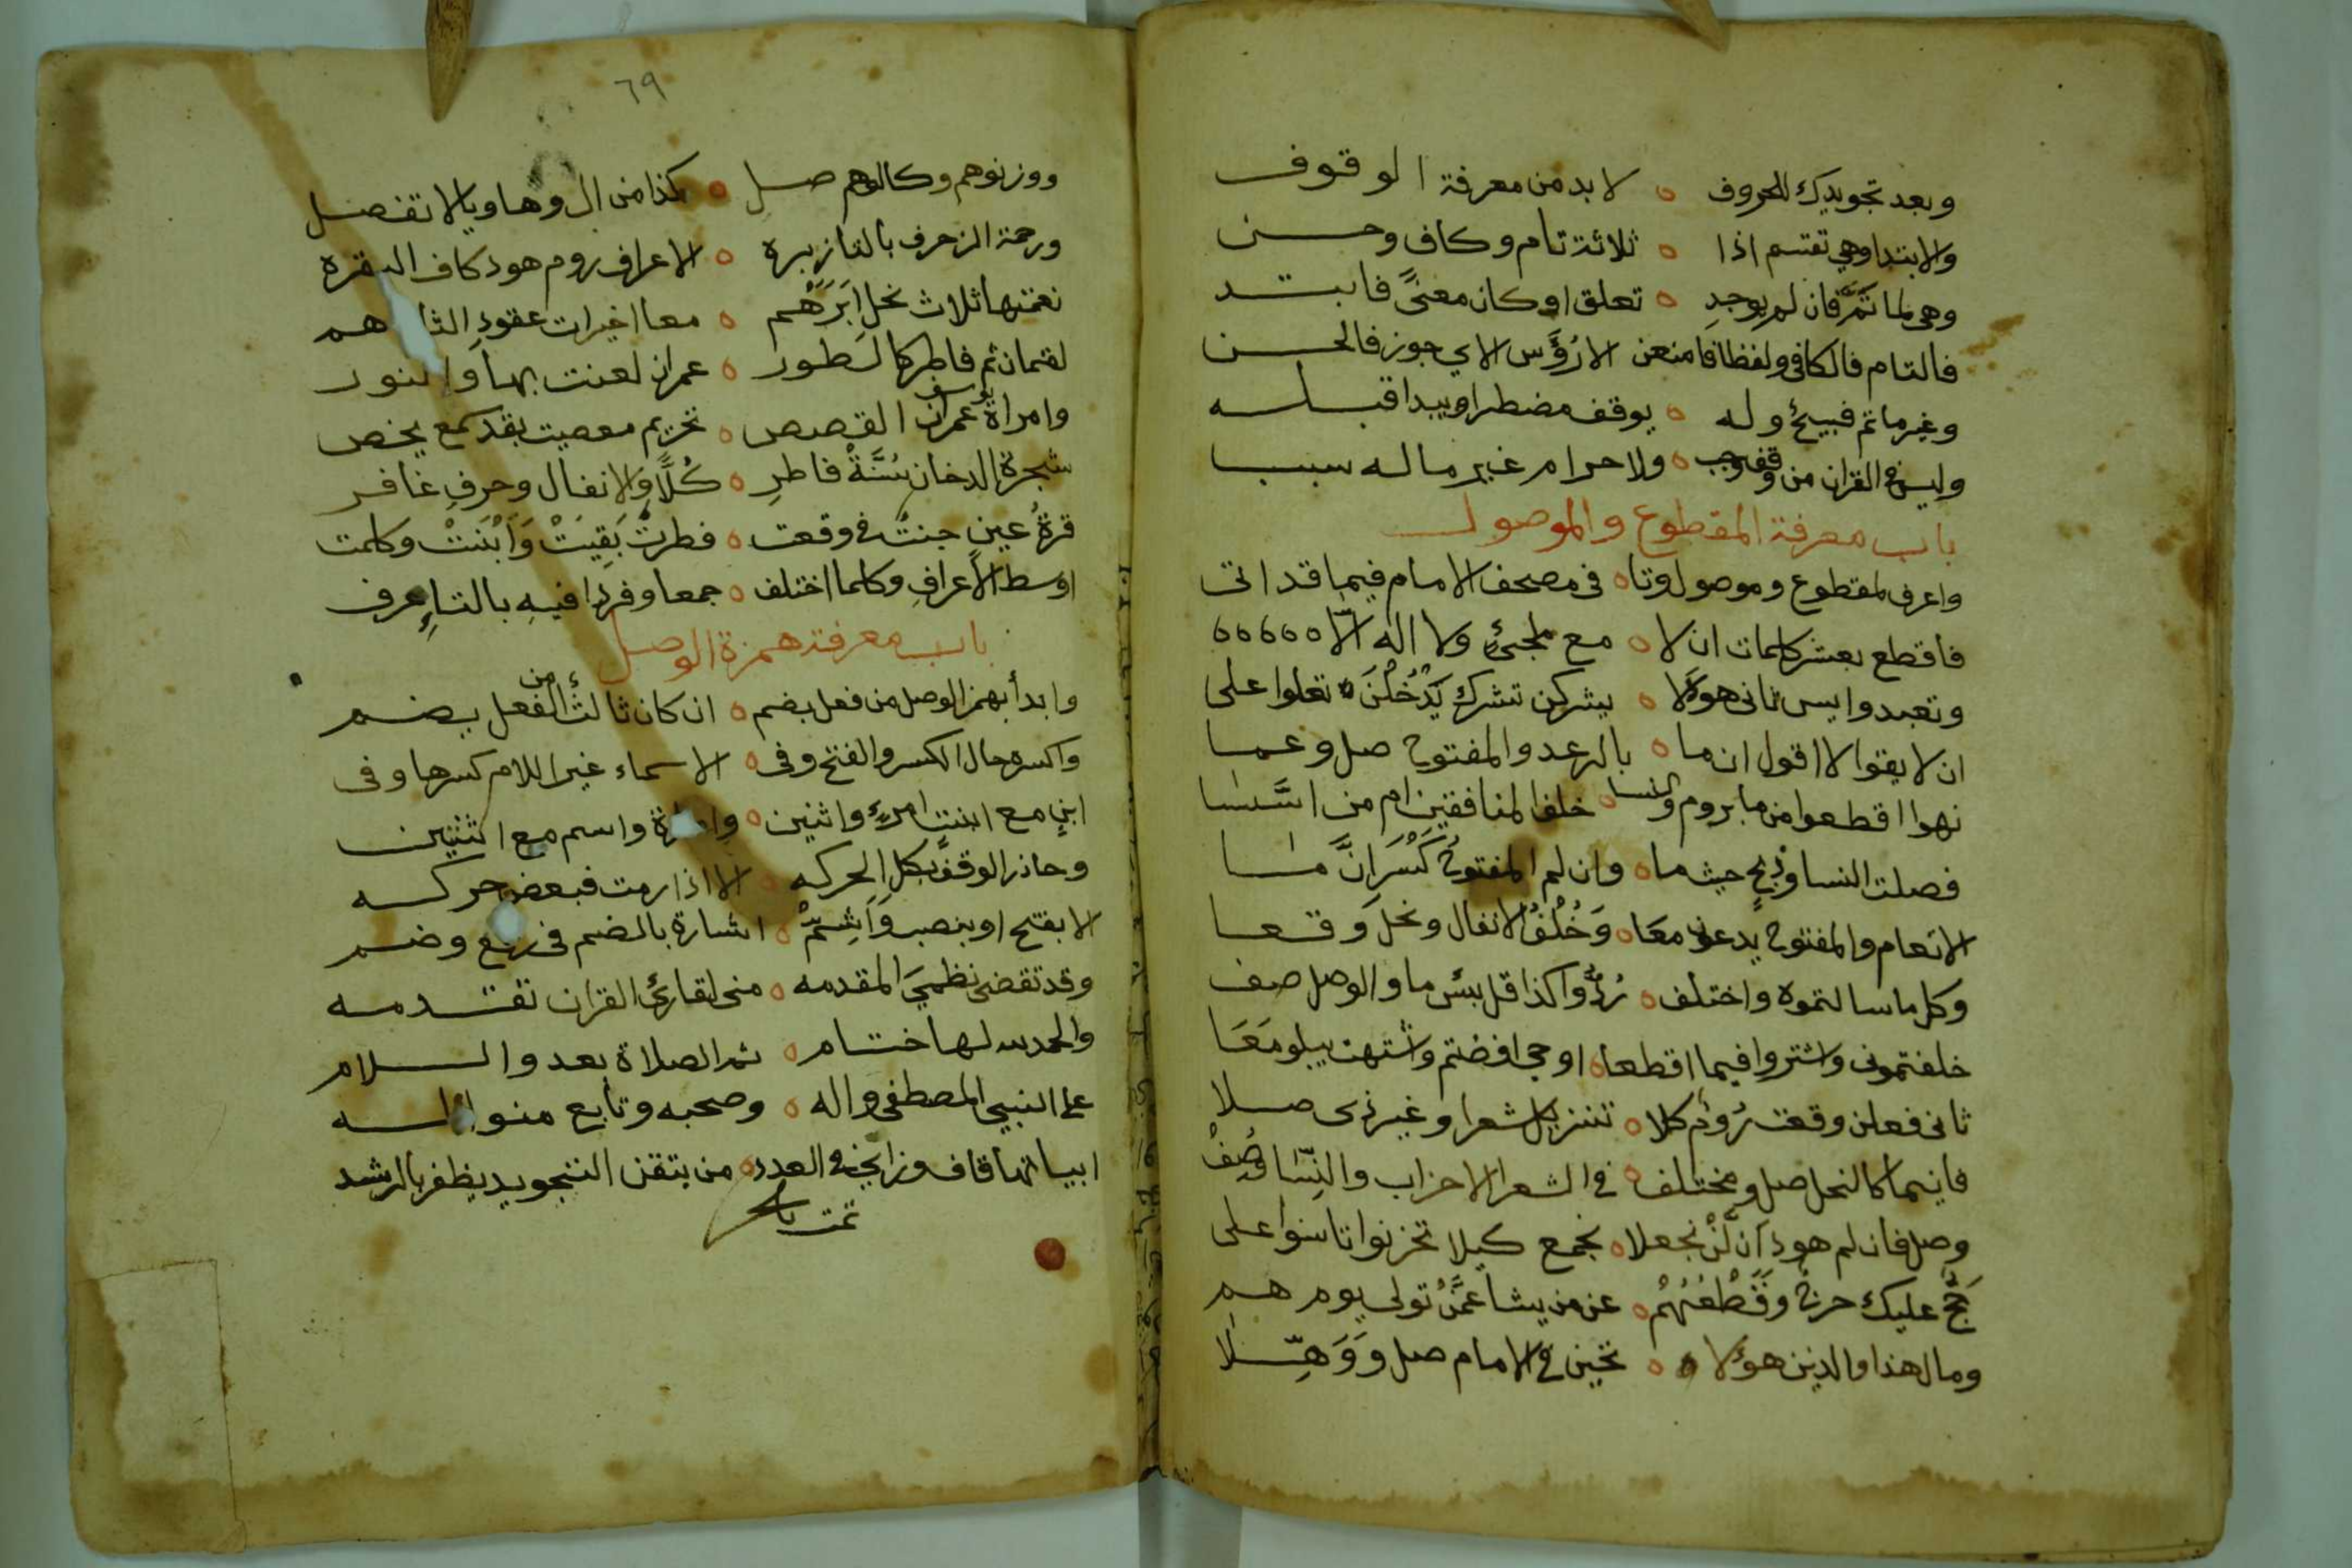 وبعد تجويدك للحروف ه لا بد من معرفة الوقوف
والابتدا وهي تقتسم اذا ه ثلاثة تام وكاف وحسن
وهي لما تم فان لم يوجد ه تعلق او كان معنًى فابتد
فالتام فالكافى ولفظا فامنعن الا رُؤس الاي جوز فالحسن
وغير ما تم قبيح وله ه يوقف مضطرا ويبدا قبله
وليس في القران من وقف وجب ه ولا حرام غير ما له سبب
باب معرفة المقطوع والموصول
واعرف لمقطوع وموصول وتا ه فى مصحف الامام فيما قد اتى
فاقطع بعشر كلمات ان لا ه مع ملجئ ولا اله الّا ٥٥٥٥٥
وتعبدوا يس ثانى هود لا ه يشركن تشرك يَدْخُلْنَ ه تعلوا على
ان لا يقولوا لا اقول ان ما ه بالرعد والمفتوح صل وعما
نهوا اقطعوا من ما بروم والنسا ه خلف المنافقين ام من اسَّسا
فصلت النسا وذبح حيث ما ه وان لم المفتوح كَسْرَ انَّ ما
الانعام والمفتوح يدعون معَا ه وَخُلْفُ الانفال ونحل وقعا
وكل ما سالتموه واختلف ه رُدُّوا كذا قل بئس ما والوصل صف
خلفتمونى واشتروا فيما اقطعا ه اوحى افضتم واشتهت يبلو مَعَا
ثانى فعلن وقعت رُوم كلا ه تنزيل شعرا وغير ذى صلا
فاينما كالنحل صل ومختلف ه في الشعرا الاحزاب والنِّسا وُصِفْ
وصل فان لم هود اَن لَّنْ نجعلا ه نجمع كيلا تحزنوا تاسوا على
حَجٌّ عليك حرج وقَطْعُهُمْ ه عن من يشا عمَّن تولى يوم هم
ومال هذا والذين هؤلا ه تحين في الامام صل ووَهِّلا
٦٩
ووزنوهم وكالوهم صل ه كذا من ال وها ويا لا تفصل
ورحمة الزخرف بالتا زبره ه الاعراف روم هود كاف البقرة
نعمتها ثلاث نحل اِبْرَهَم ه معا اخيرات عقود الثا هم
لقمان ثم فاطر كالطور ه عمران لعنت بها والنور
وامراة يوسف عمران القصص ه تحريم معصيت بقد سمع يخص
شجرة الدخان سُنَّةْ فاطرِ ه كُلًّا والانفال وحرفِ غافر
قرةُ عين جنتٌ فى وقعت ه فطرت بَقِيَتْ وَاَبْنَتْ وكلمت
اوسط الاعرافِ وكلما اختلف ه جمعا وفردا فيه بالتاءِ عرف
باب معرفة همزة الوصل
وابدأ بهمز الوصل من فعل بضم ه ان كان ثالث من الفعل يضم
واكسره حال الكسر والفتح وفى ه الاسماء غير اللام كسرها وفى
ابنٍ مع ابنت امرئٍ واثنين ه وامراة واسم مع اثنتين
وحاذر الوقف بكل الحركه ه الا اذا رمت فبعض حركه
الا بفتح او بنصب وَاَشِمّْ ه اشارة بالضم فى رفع وضم
وقد تقضى نظمىَ المقدمه ه منى لقارئ القران تقدمه
والحمد لله لها ختام ه ثم الصلاة بعد والسلام
على النبي المصطفى واله ه وصحبه وتابع منواله
ابياتها قاف وزاي في العدد ه من يتقن التجويد يظفر بالرشد
تمت